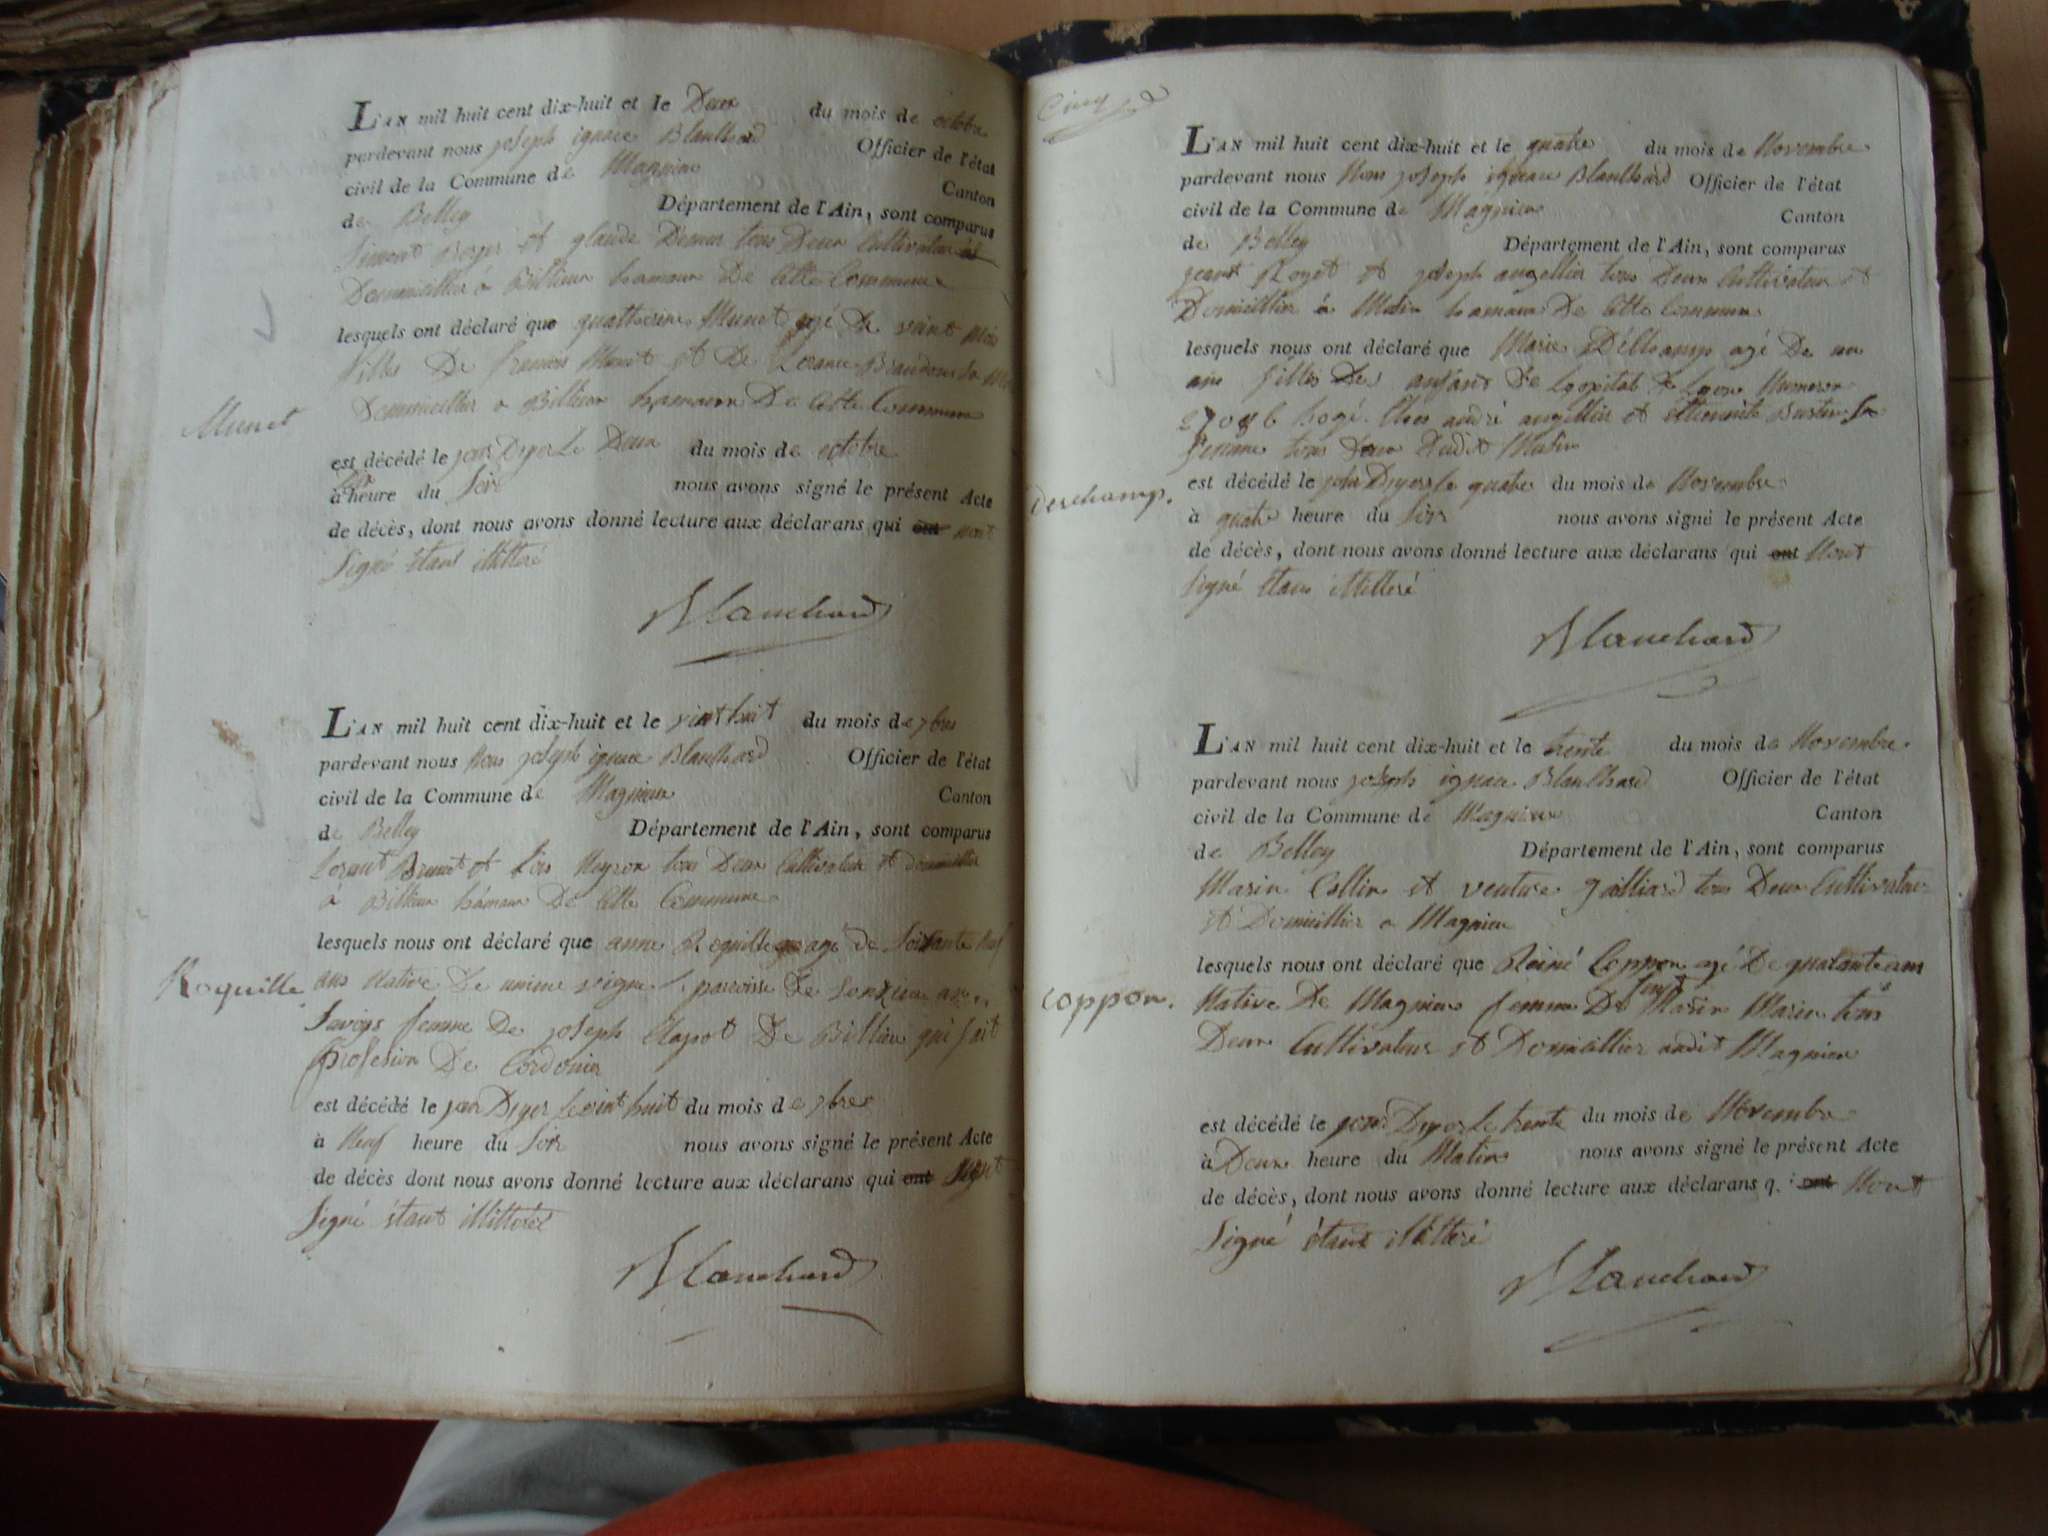 L'AN mil huit cent dix-huit et le Deux du mois de octobre
pardevant nous joseph ignace Blanchard Officier de l'état
civil de la Commune de Magnieu Canton
de Belley Département de l'Ain, sont comparus
Simont Berger et glaude tous Deux Cultivateur et
Domicillié á Billieu hamaux De Cette Commune
lesquels ont déclaré que Munet agé De vint Mois
fille De Munet et De
Domicillier a Billieu hamaux De Cette Commune
Munet
est décédé le jour Dyer Le Deux du mois de octobre
à heure du Soir nous avons signé le présent Acte
de décès, dont nous avons donné lecture aux déclarans qui ont nont
Signé étant illitteré
Blanchard
L'AN mil huit cent dix-huit et le vint huit du mois de 7bres
pardevant nous Nous joseph ignace Blanchard Officier de l'état
civil de la Commune de Magnieu Canton
de Belley Département de l'Ain, sont comparus
Brunet et Neyron tous Deux Cultivateur et domicillier
á Billieu hámaux De Cette Commune
lesquels nous ont déclaré que anne Roquille agé de Soixante neuf
ans Native De parroisse De
Savoys femme De joseph De Billieu qui fait
profesion De Cordonier
Roquille
est décédé le jour Dyer Le vint huit du mois de 7bres
à Neuf heure du Soir nous avons signé le présent Acte
de décès dont nous avons donné lecture aux déclarans qui ont Nont
Signé étant illitteré
Blanchard
Cinq
L'AN mil huit cent dix-huit et le quatre du mois de Novembre
pardevant nous Nous joseph ignace Blanchard Officier de l'état
civil de la Commune de Magnieu Canton
de Belley Département de l'Ain, sont comparus
jeant Royet et joseph augellier tous Deux Cultivateur et
Domicillier á hamaux De Cette Commune
lesquels nous ont déclaré que Marie Déchamp agé De un
ans filles De anfant De Lopital De Lyon Numeros
andré augellier et
femme tous Deux Dudit
deschamp.
est décédé le jour Dyer le quatre du mois de Novembre
à quatre heure du Soir nous avons signé le présent Acte
de décès, dont nous avons donné lecture aux déclarans qui ont Nont
Signé étans illitteré
Blanchard
L'AN mil huit cent dix-huit et le trente du mois de Novembre
pardevant nous joseph ignace Blanchard Officier de l'état
civil de la Commune de Magnieux Canton
de Belley Département de l'Ain, sont comparus
Marin Collin et venture galliard tous Deux Cultivateur
et Domicillier a Magnieu
lesquels nous ont déclaré que Reiné Coppon agé De quarante ans
Native De Magnieu femme De Marin tous
Deux Cultivateur et Domicillier audit Magnieu
coppon.
est décédé le jour Dyer Le trente du mois de Novembre
à Deux heure du Matin nous avons signé le présent Acte
de décès, dont nous avons donné lecture aux déclarans q. i ont Nont
Signé étant illitteré
Blanchard